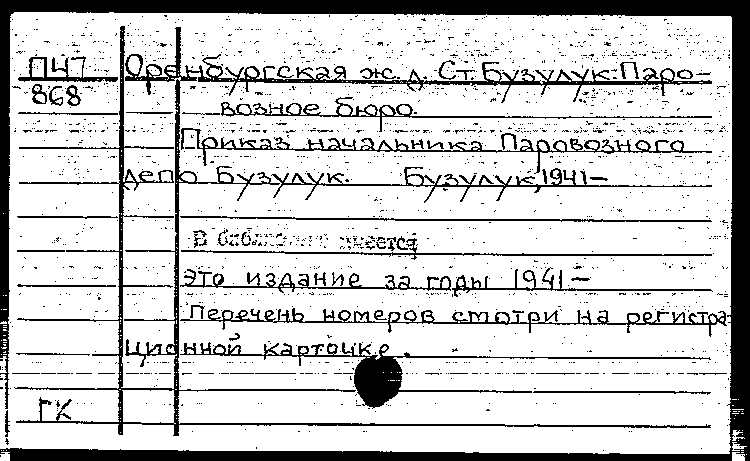 П47 Оренбургская ж.д. Ст. Бузулук. Паро-
868 возное бюро.
Приказ начальника Паровозного
депо Бузулук. Бузулук, 1941–
В библиотеке имеется
это издание за годы 1941–
Перечень номеров смотри на регистра-
ционной карточке.
ГК